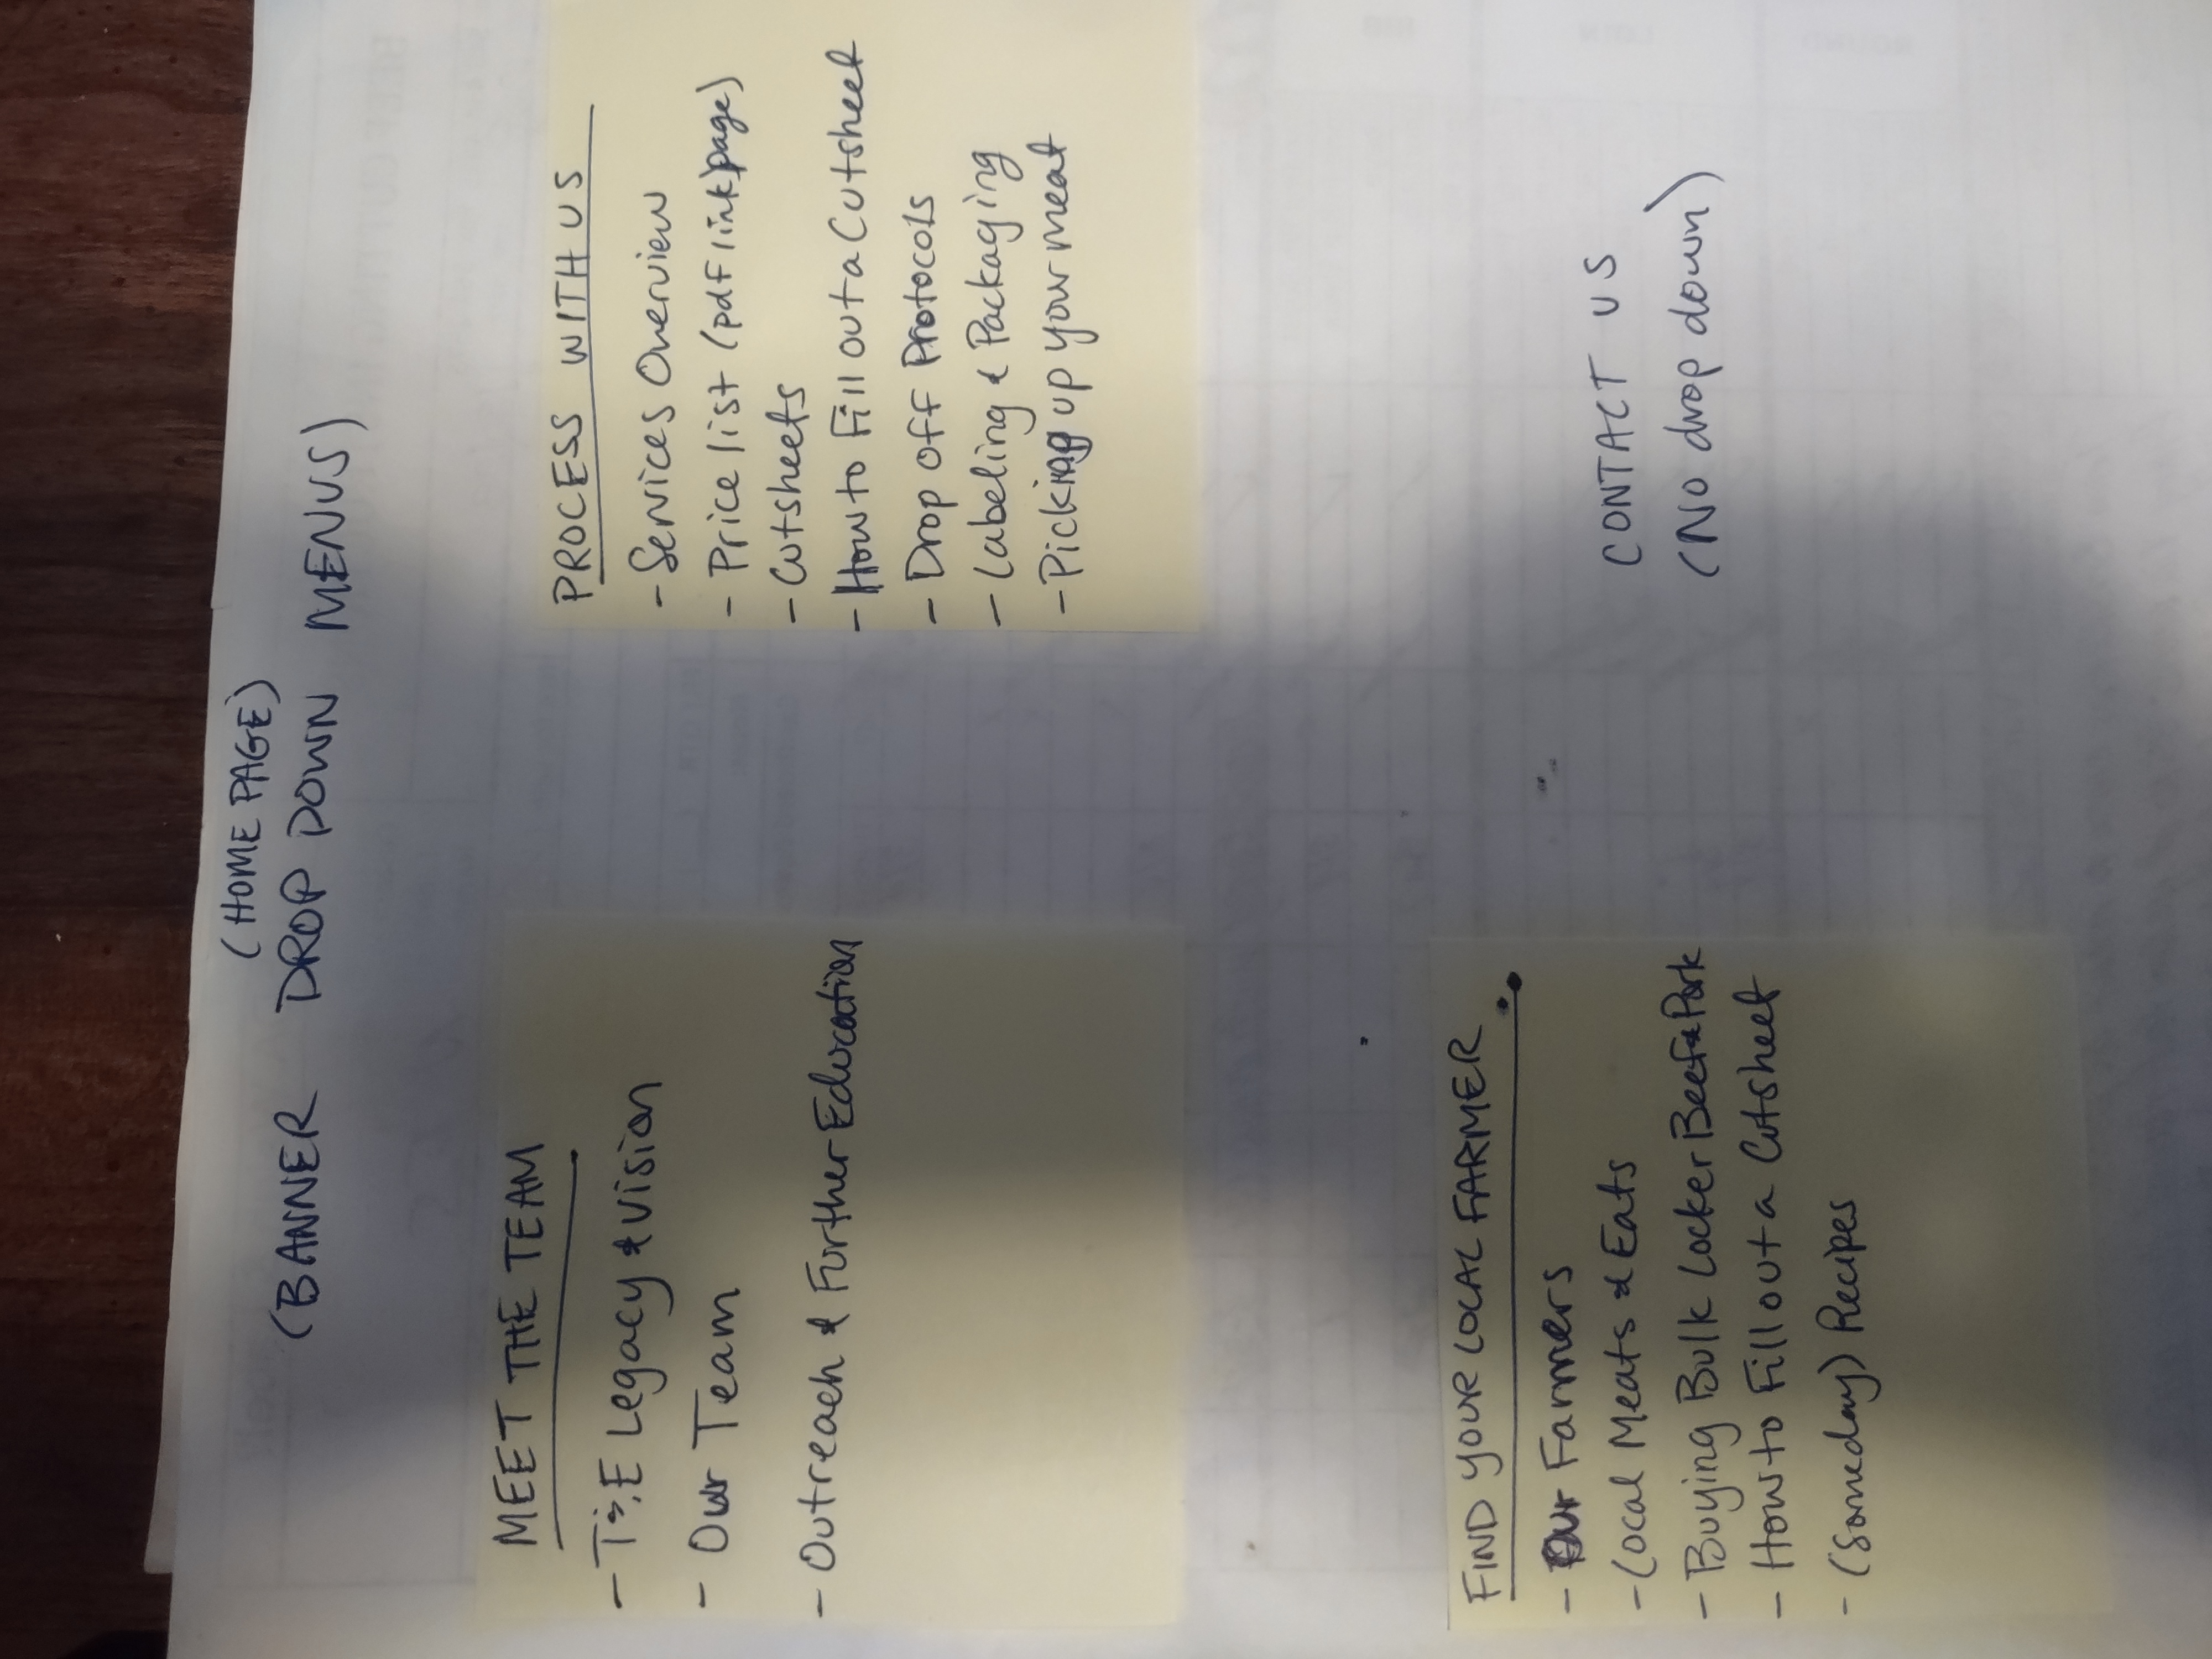 (HOME PAGE)
(BANNER DROP DOWN MENUS)
MEET THE TEAM
- T&E Legacy & Vision
- Our Team
- Outreach & Further Education
PROCESS WITH US
- Services Overview
- Price list (pdf link) page)
- Cutsheets
- How to Fill out a Cutsheet
- Drop off Protocols
- Labeling & Packaging
- Picking up your meat
FIND YOUR LOCAL FARMER
- Our Farmers
- Local Meats & Eats
- Buying Bulk Locker Beef & Pork
- How to Fill out a Cutsheet
- (Someday) Recipes
CONTACT US
(No drop down)